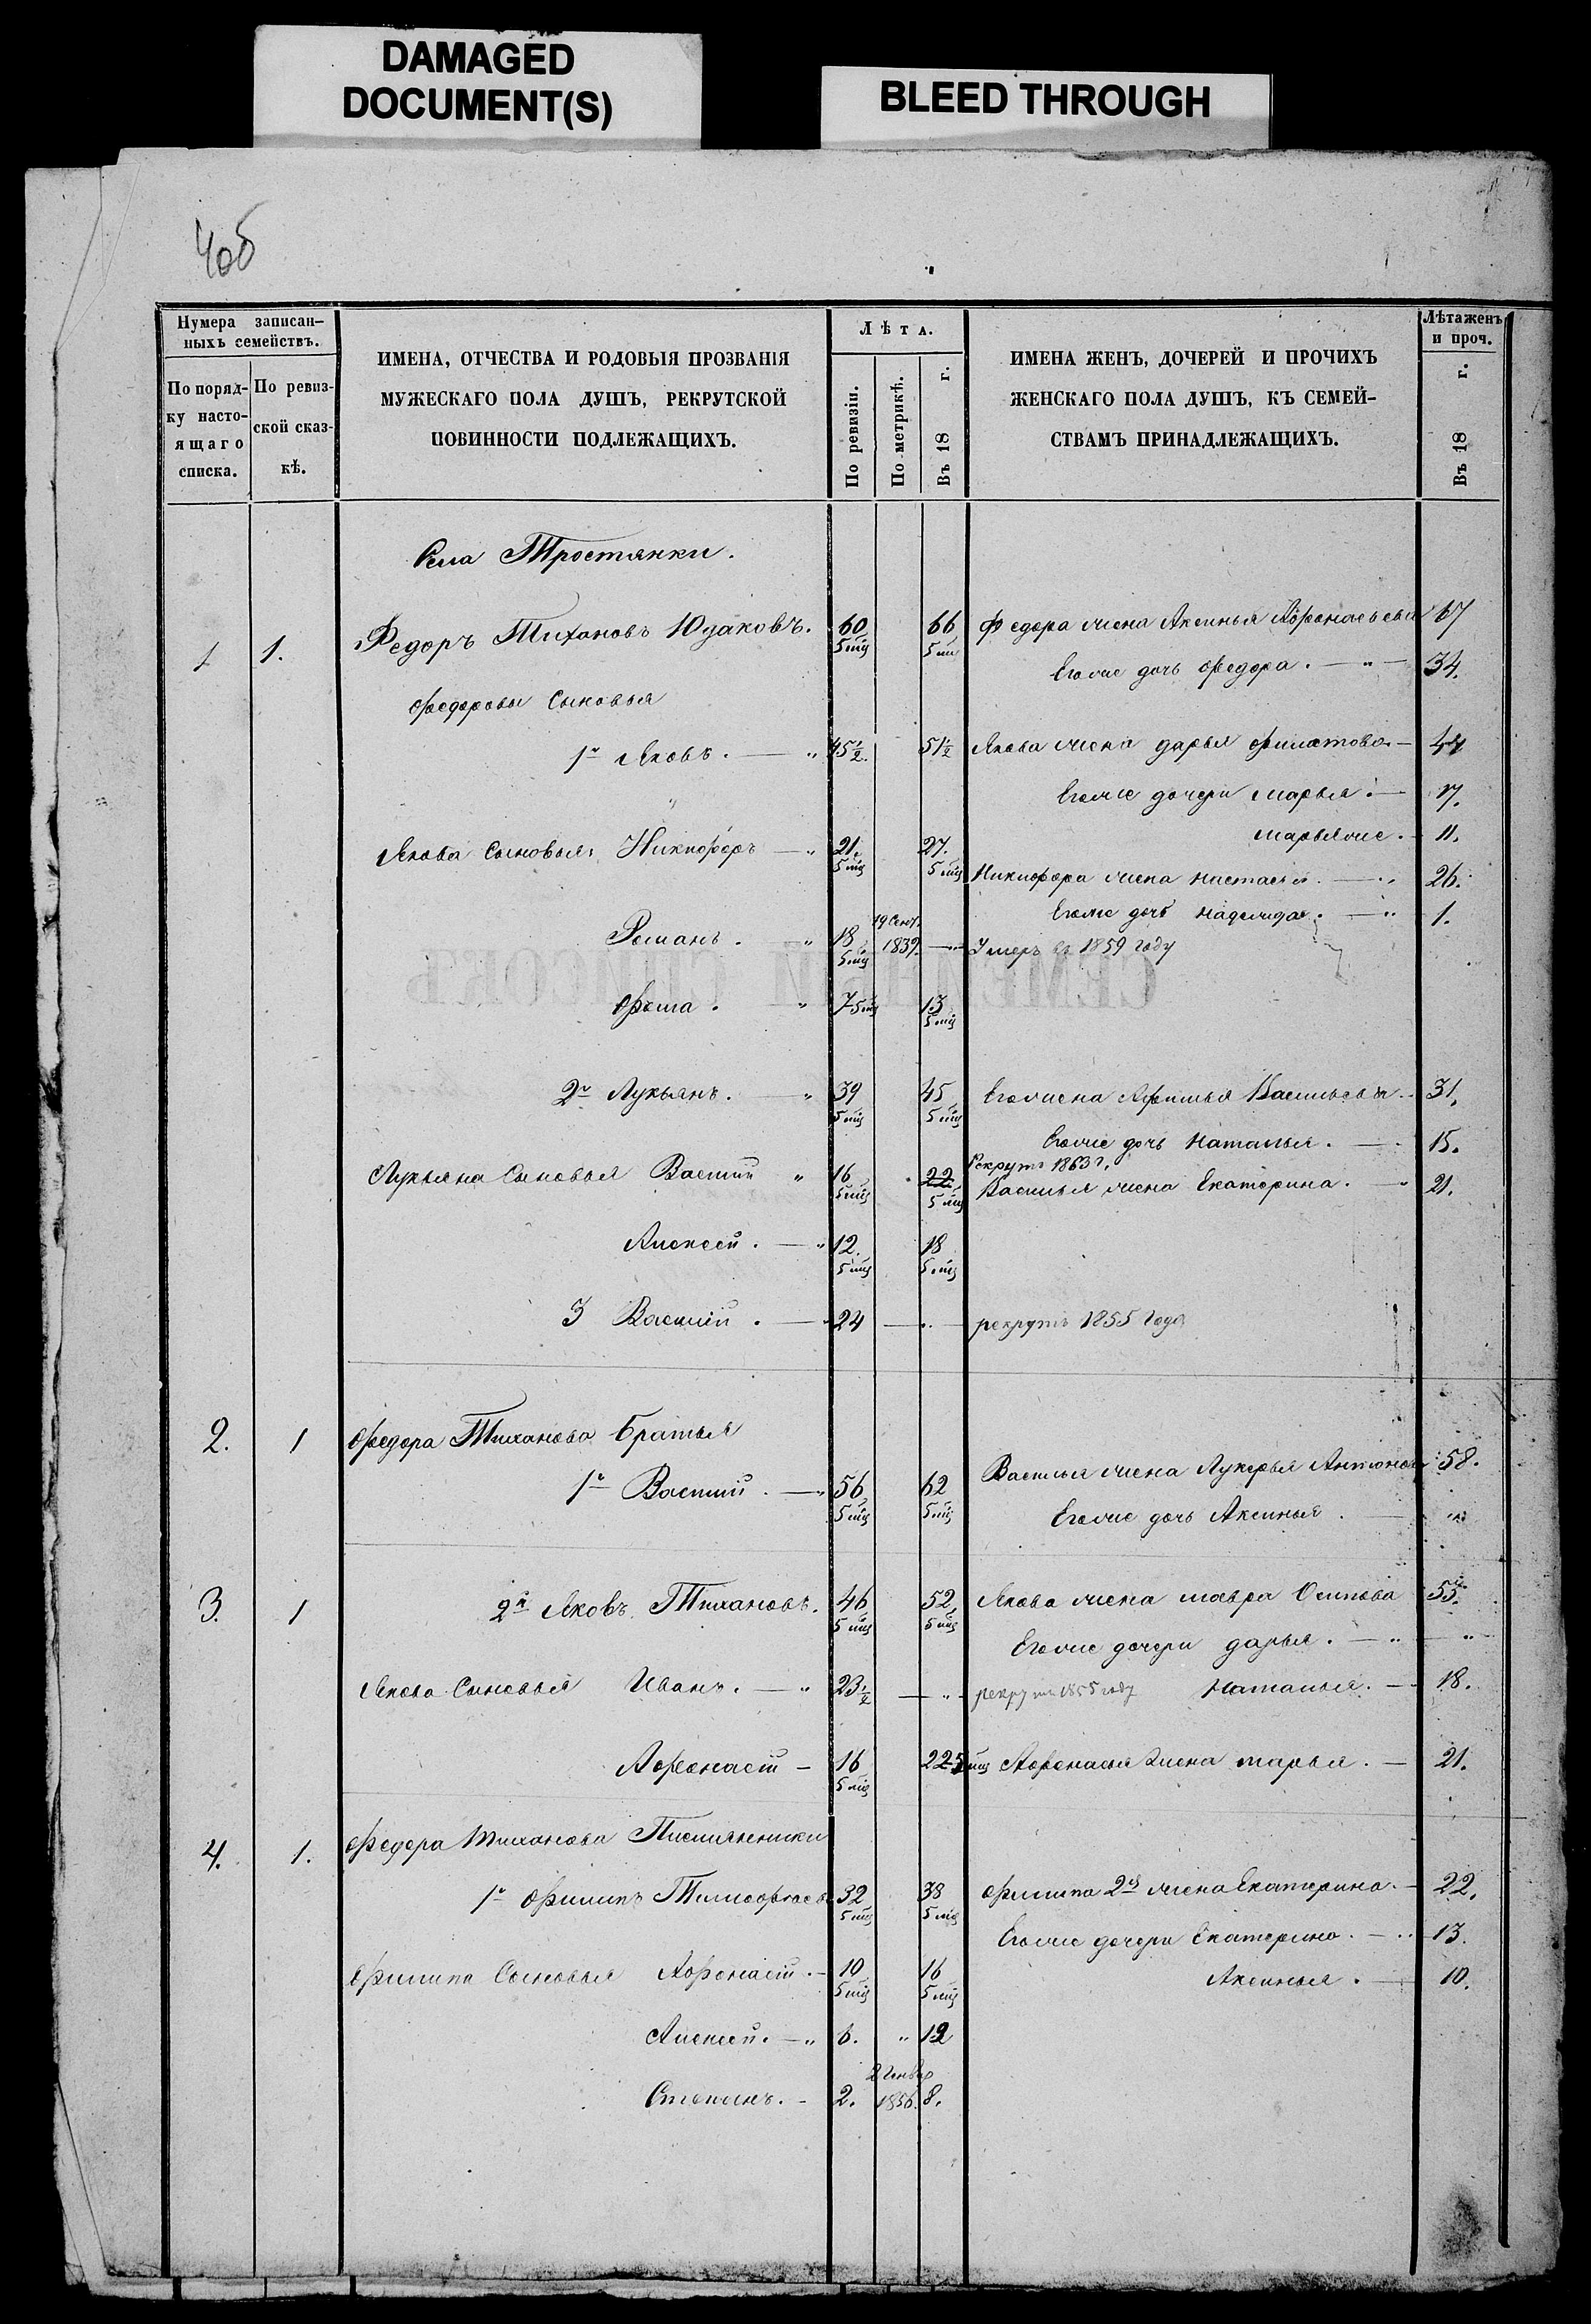 DAMAGED
DOCUMENT(S)
BLEED THROUGH
4об
Нумера записан-
ныхъ семействъ.
По поряд-
ку насто-
ящаго
списка.
По ревиз-
ской сказ-
кѣ.
ИМЕНА, ОТЧЕСТВА И РОДОВЫЯ ПРОЗВАНІЯ
МУЖЕСКАГО ПОЛА ДУШЪ, РЕКРУТСКОЙ
ПОВИННОСТИ ПОДЛЕЖАЩИХЪ.
Лѣта.
По ревизіи.
По метрикѣ.
Въ 18 г.
ИМЕНА ЖЕНЪ, ДОЧЕРЕЙ И ПРОЧИХЪ
ЖЕНСКАГО ПОЛА ДУШЪ, КЪ СЕМЕЙ-
СТВАМЪ ПРИНАДЛЕЖАЩИХЪ.
Лѣта женъ
и проч.
Въ 18 г.
Села Тростянки.
1 1. Федоръ Тихановъ Юдаковъ. 60 5 мц 66 5 мц Федора жена Аксинья Афонасьева 67
Егоже дочь Федора. 34.
Федоровы Сыновья
1й Яковъ. 45½. 51½ Якова жена дарья Филатова 44
Егоже дочери Марья. 17.
Марьяже. 11.
Якова Сыновья, Никифоръ 21. 5 мц 27. 5 мц Никифора жена Настасья. 26.
Егоже дочь Надежда. 1.
Романъ. 18 5 мц 19 Сент. 1839. Умеръ въ 1859 году
Фома. 7 5 мц 13 5 мц
2й Лукьянъ. 39 5 мц 45 5 мц Егожена Афимья Васильева 31.
Егоже дочь Наталья. 15.
Рекрутъ 1863 г.
Лукьяна Сыновья Василій 16 5 мц 22 5 мц Василья жена Екатерина. 21.
Алексей. 12. 5 мц 18 5 мц
3 Василій. 24 рекрутъ 1855 года
2. 1 Федора Тиханова Братья
1й Василій. 56 5 мц 62 5 мц Василья жена Лукерья Антонова 58.
Егоже дочь Аксинья.
3. 1 2й Яковъ Тихановъ. 46 5 мц 52 5 мц Якова жена мавра Осипова 55.
Егоже дочери дарья.
Якова Сыновья Иванъ. 23½ рекрутъ 1855 году Наталья. 18.
Афонасій 16 5 мц 22 5 мц Афонасья жена марья. 21.
4. 1. Федора Тиханова Племянники
1й Филипъ Тимофеевъ 32 5 мц 38 5 мц Филипа 2я жена Екатерина. 22.
Егоже дочери Екатерина. 13.
Филипа Сыновья Афонасій. 10 5 мц 16 5 мц Аксинья. 10.
Алексей. 6. 12
Степанъ. 2. 2 Генвар 1856. 8.